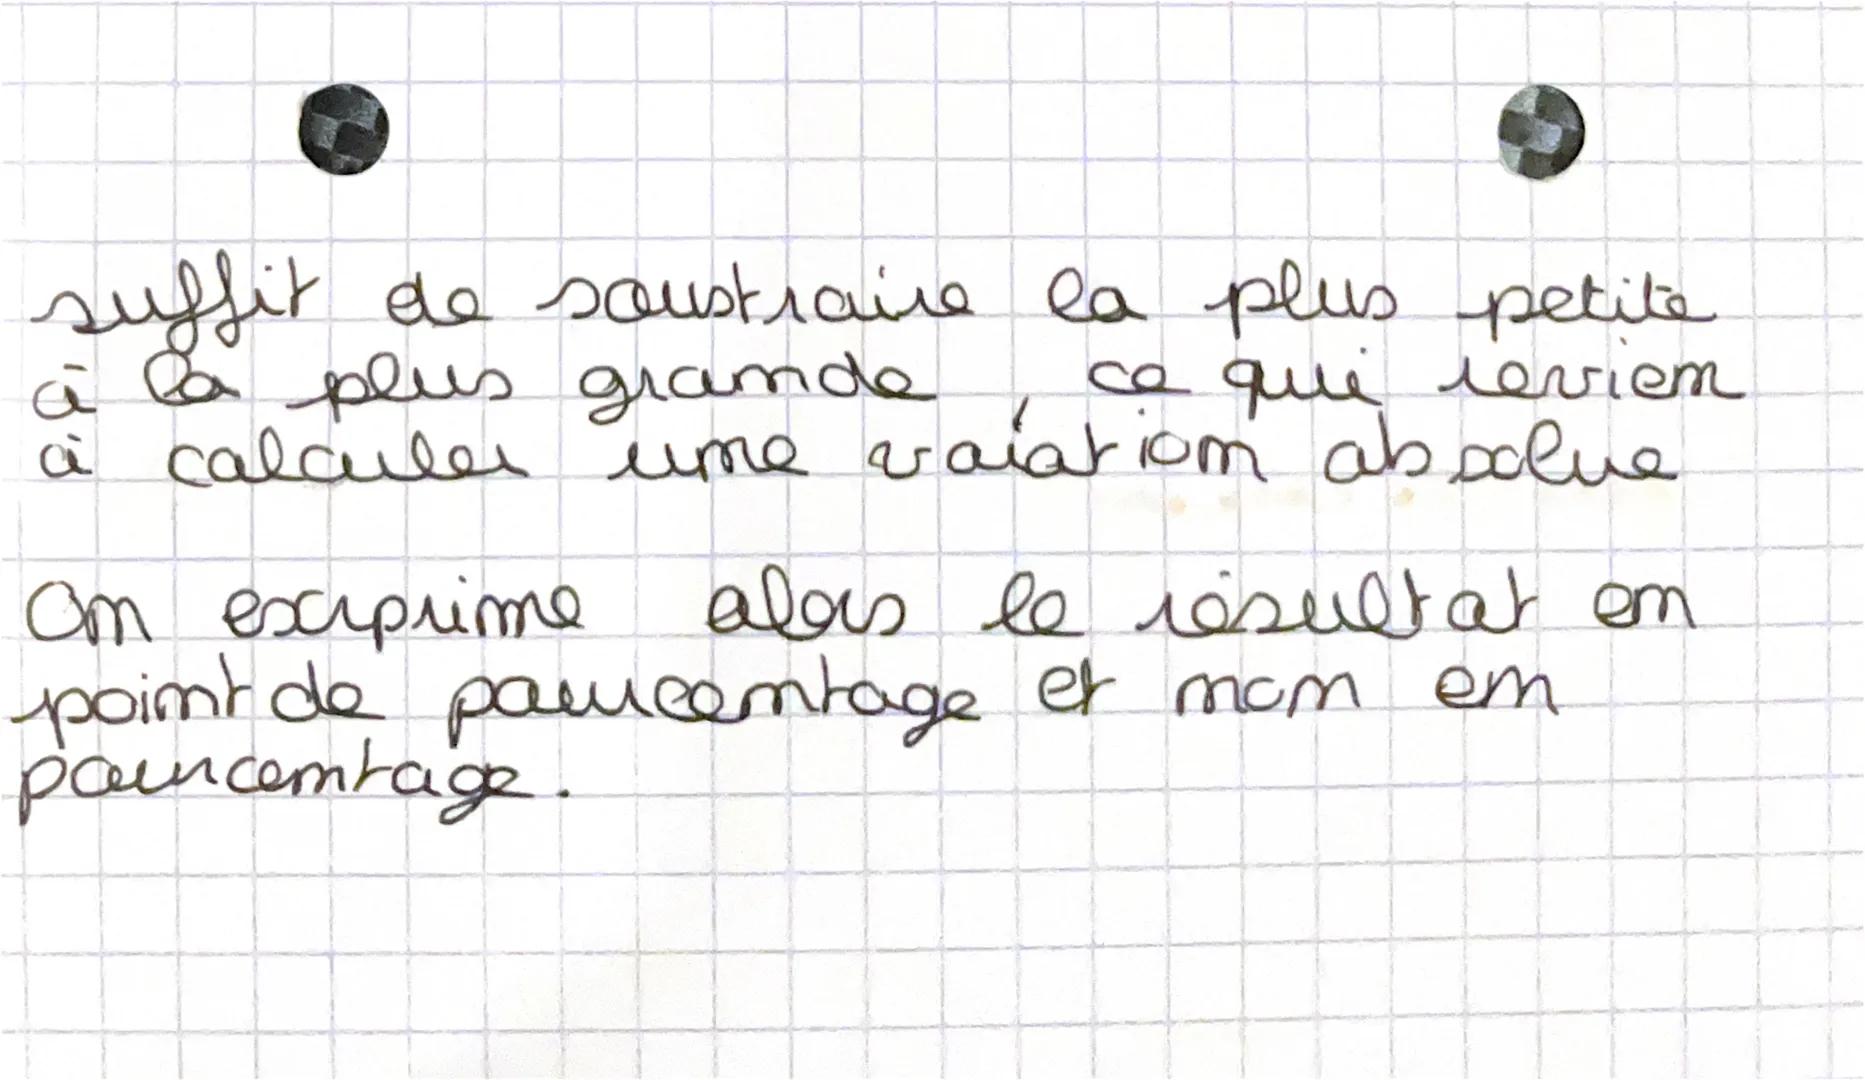 suffit de soustraire la plus petite
à la plus grande, ce qui revien
à calculer une vaiation absolue
On exprime alors le résultat en
point de pourcentage et non en
pourcentage.